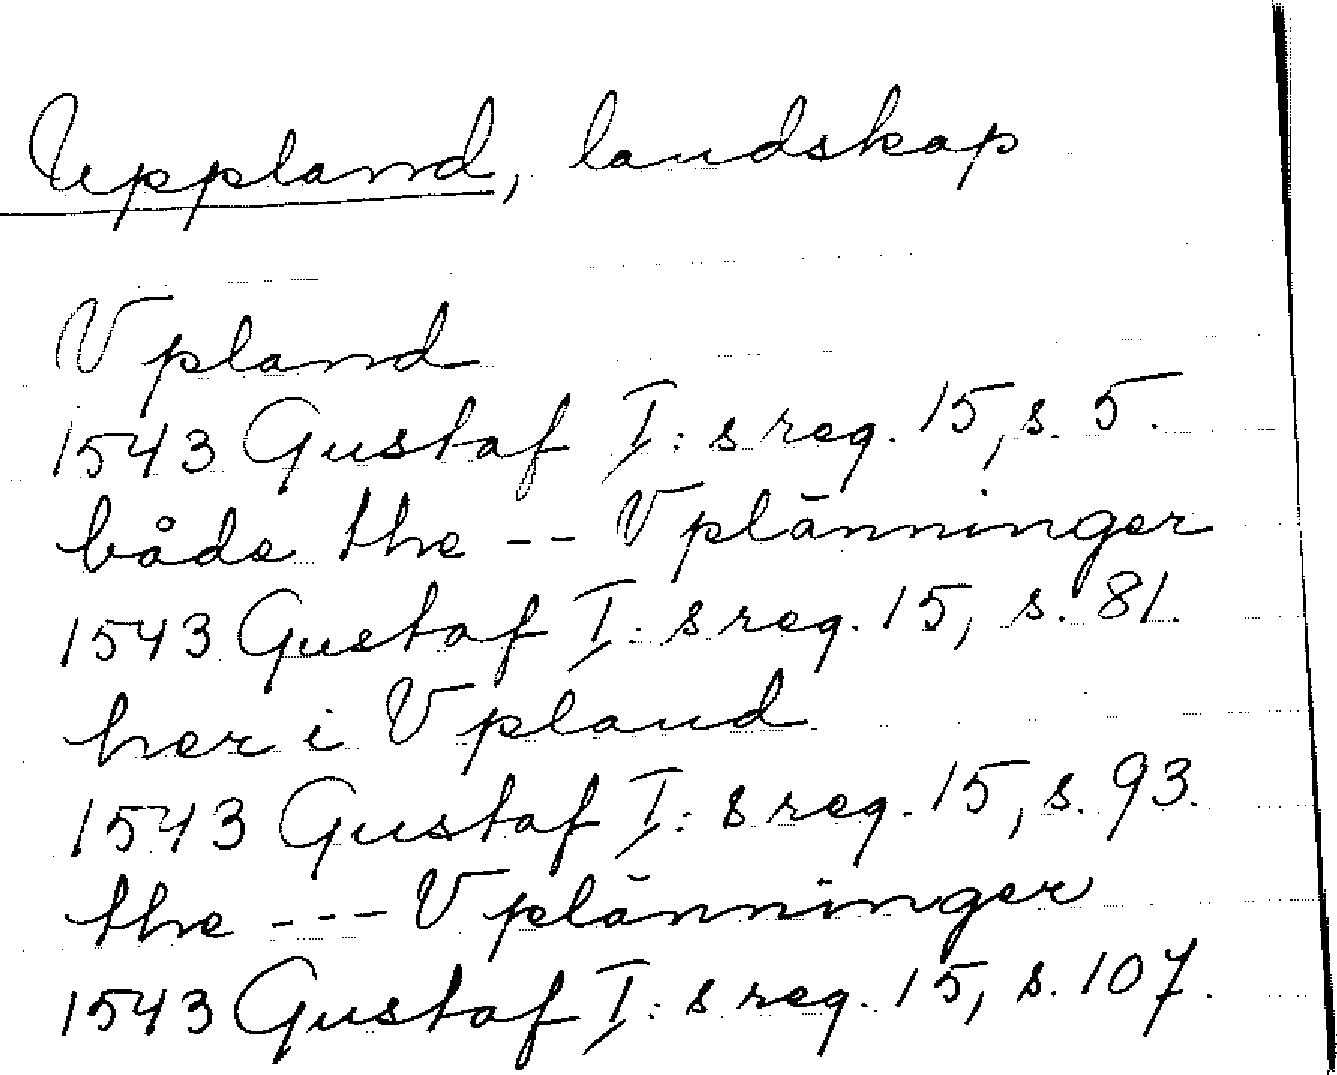 Uppland, landskap
Vpland
1543 Gustaf I: s reg. 15, s. 5.
både the -- Vplänninger
1543 Gustaf I: s reg. 15, s. 81.
her i Vpland
1543 Gustaf I: s reg. 15, s. 93.
the --- Vplänninger
1543 Gustaf I: s reg. 15, s. 107.